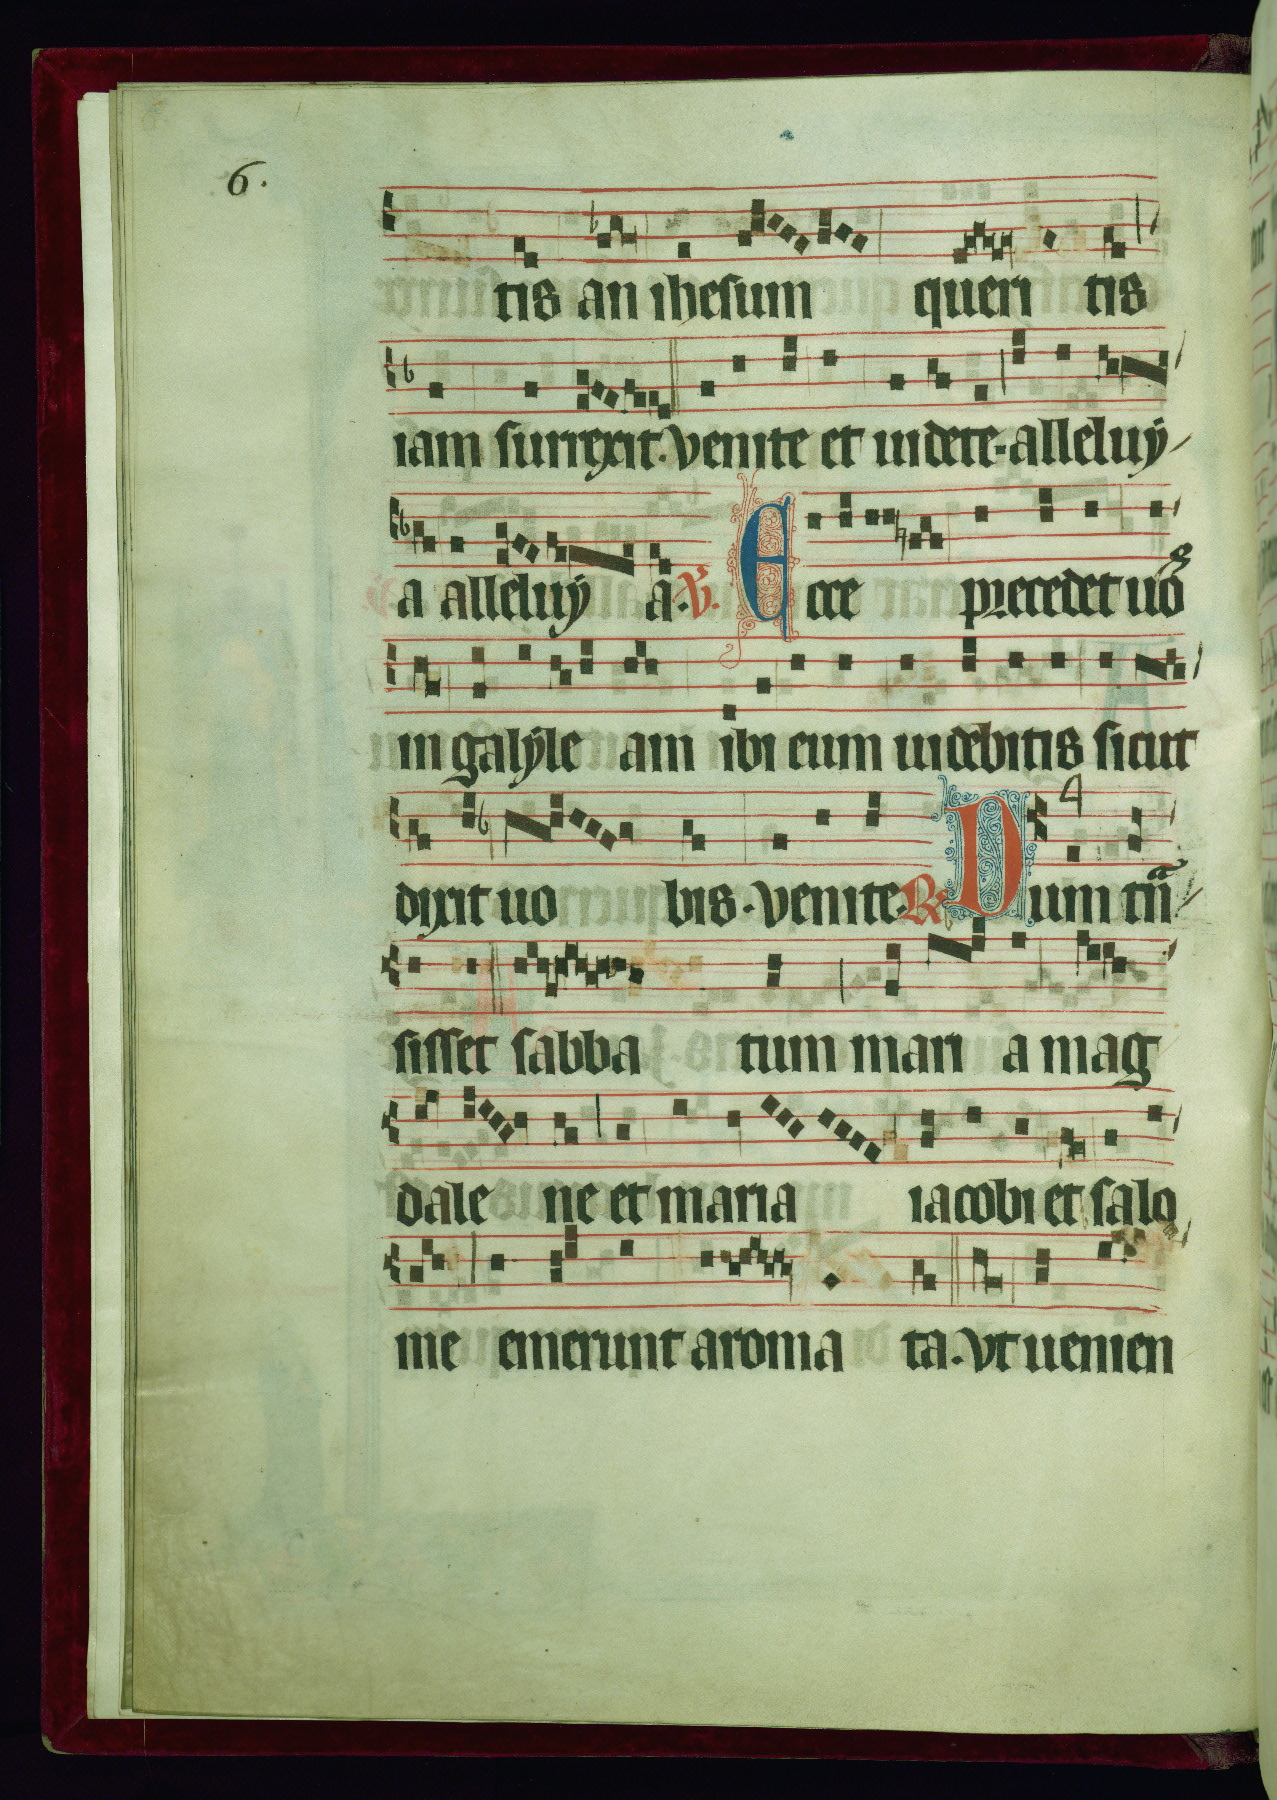 6.
tis an ihesum queri tis
iam surrexit. venite et uidete. alleluÿ
a alleluÿ a. V. Ecce precedet uos
in galÿle am ibi eum uidebitis sicut
dixit uo bis. venite. R Dum tn̄a
sisset sabba tum mari a mag
dale ne et maria iacobi et salo
me emerunt aroma ta. vt uenien